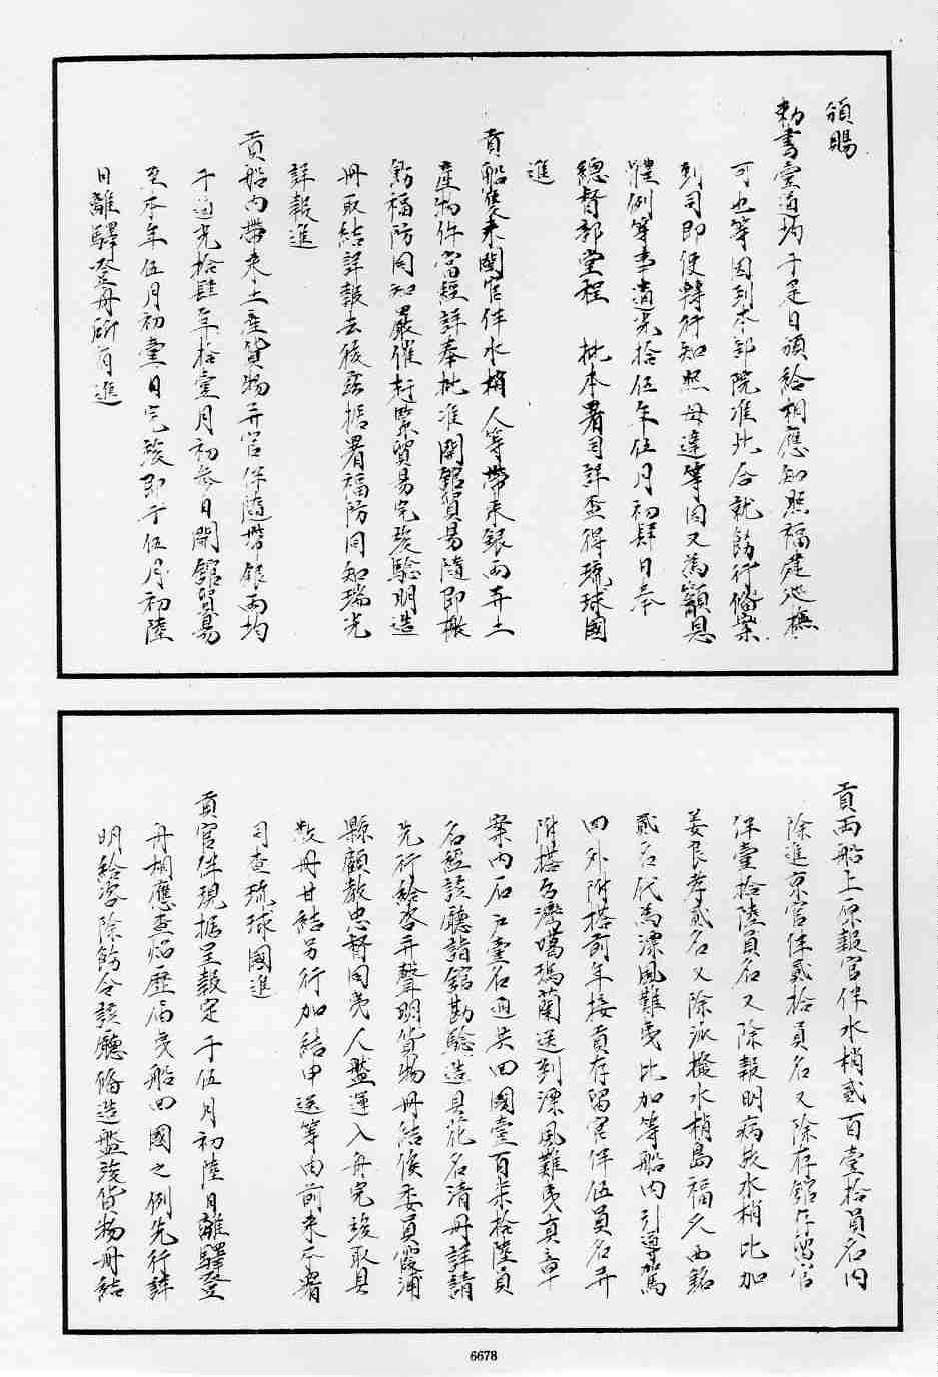 頒賜
勅書壹道均于是日頒給相應知照福建巡撫
可也等因到本部院准此合就飭行備案
到司即便轉行知照毋違等因又為籲恩
體例等事道光拾伍年伍月初肆日奉
總督部堂程 批本署司詳查得琉球國
進
貢船隻来閩官伴水梢人等帶来銀両并土
產物件當經詳奉批准開舘貿易隨即檄
飭福防同知嚴催赶緊貿易完竣驗明造
冊取結詳報去後茲据署福防同知瑞光
詳報進
貢船内帶来土產貨物并官伴隨帶銀両均
于道光拾肆年拾壹月初叁日開舘貿易
至本年伍月初壹日完竣即于伍月初陸
日離驛登舟所有進
貢両船上原報官伴水梢貳百壹拾員名内
除進京官伴貳拾員名又除存舘存留官
伴壹拾陸員名又除報明病故水梢比加
姜良孝貳名又除派撥水梢島福久西銘
貳名代為漂風難夷比加等船内引導駕
回外附搭前年接貢存留官伴伍員名并
附搭台灣噶瑪蘭送到漂風難夷真章
案内石戸壹名通共回國壹百柒拾陸員
名經該廳詣舘勘驗造具花名清冊詳請
先行給咨并聲明貨物冊結俟委員霞浦
縣顧教忠督同夷人盤運入舟完竣取具
數冊甘結另行加結申送等由前来本署
司查琉球國進
貢官伴現据呈報定于伍月初陸日離驛登
舟相應查炤歷届夷船回國之例先行詳
明給咨除飭令該廳俻造盤竣貨物冊結
6678